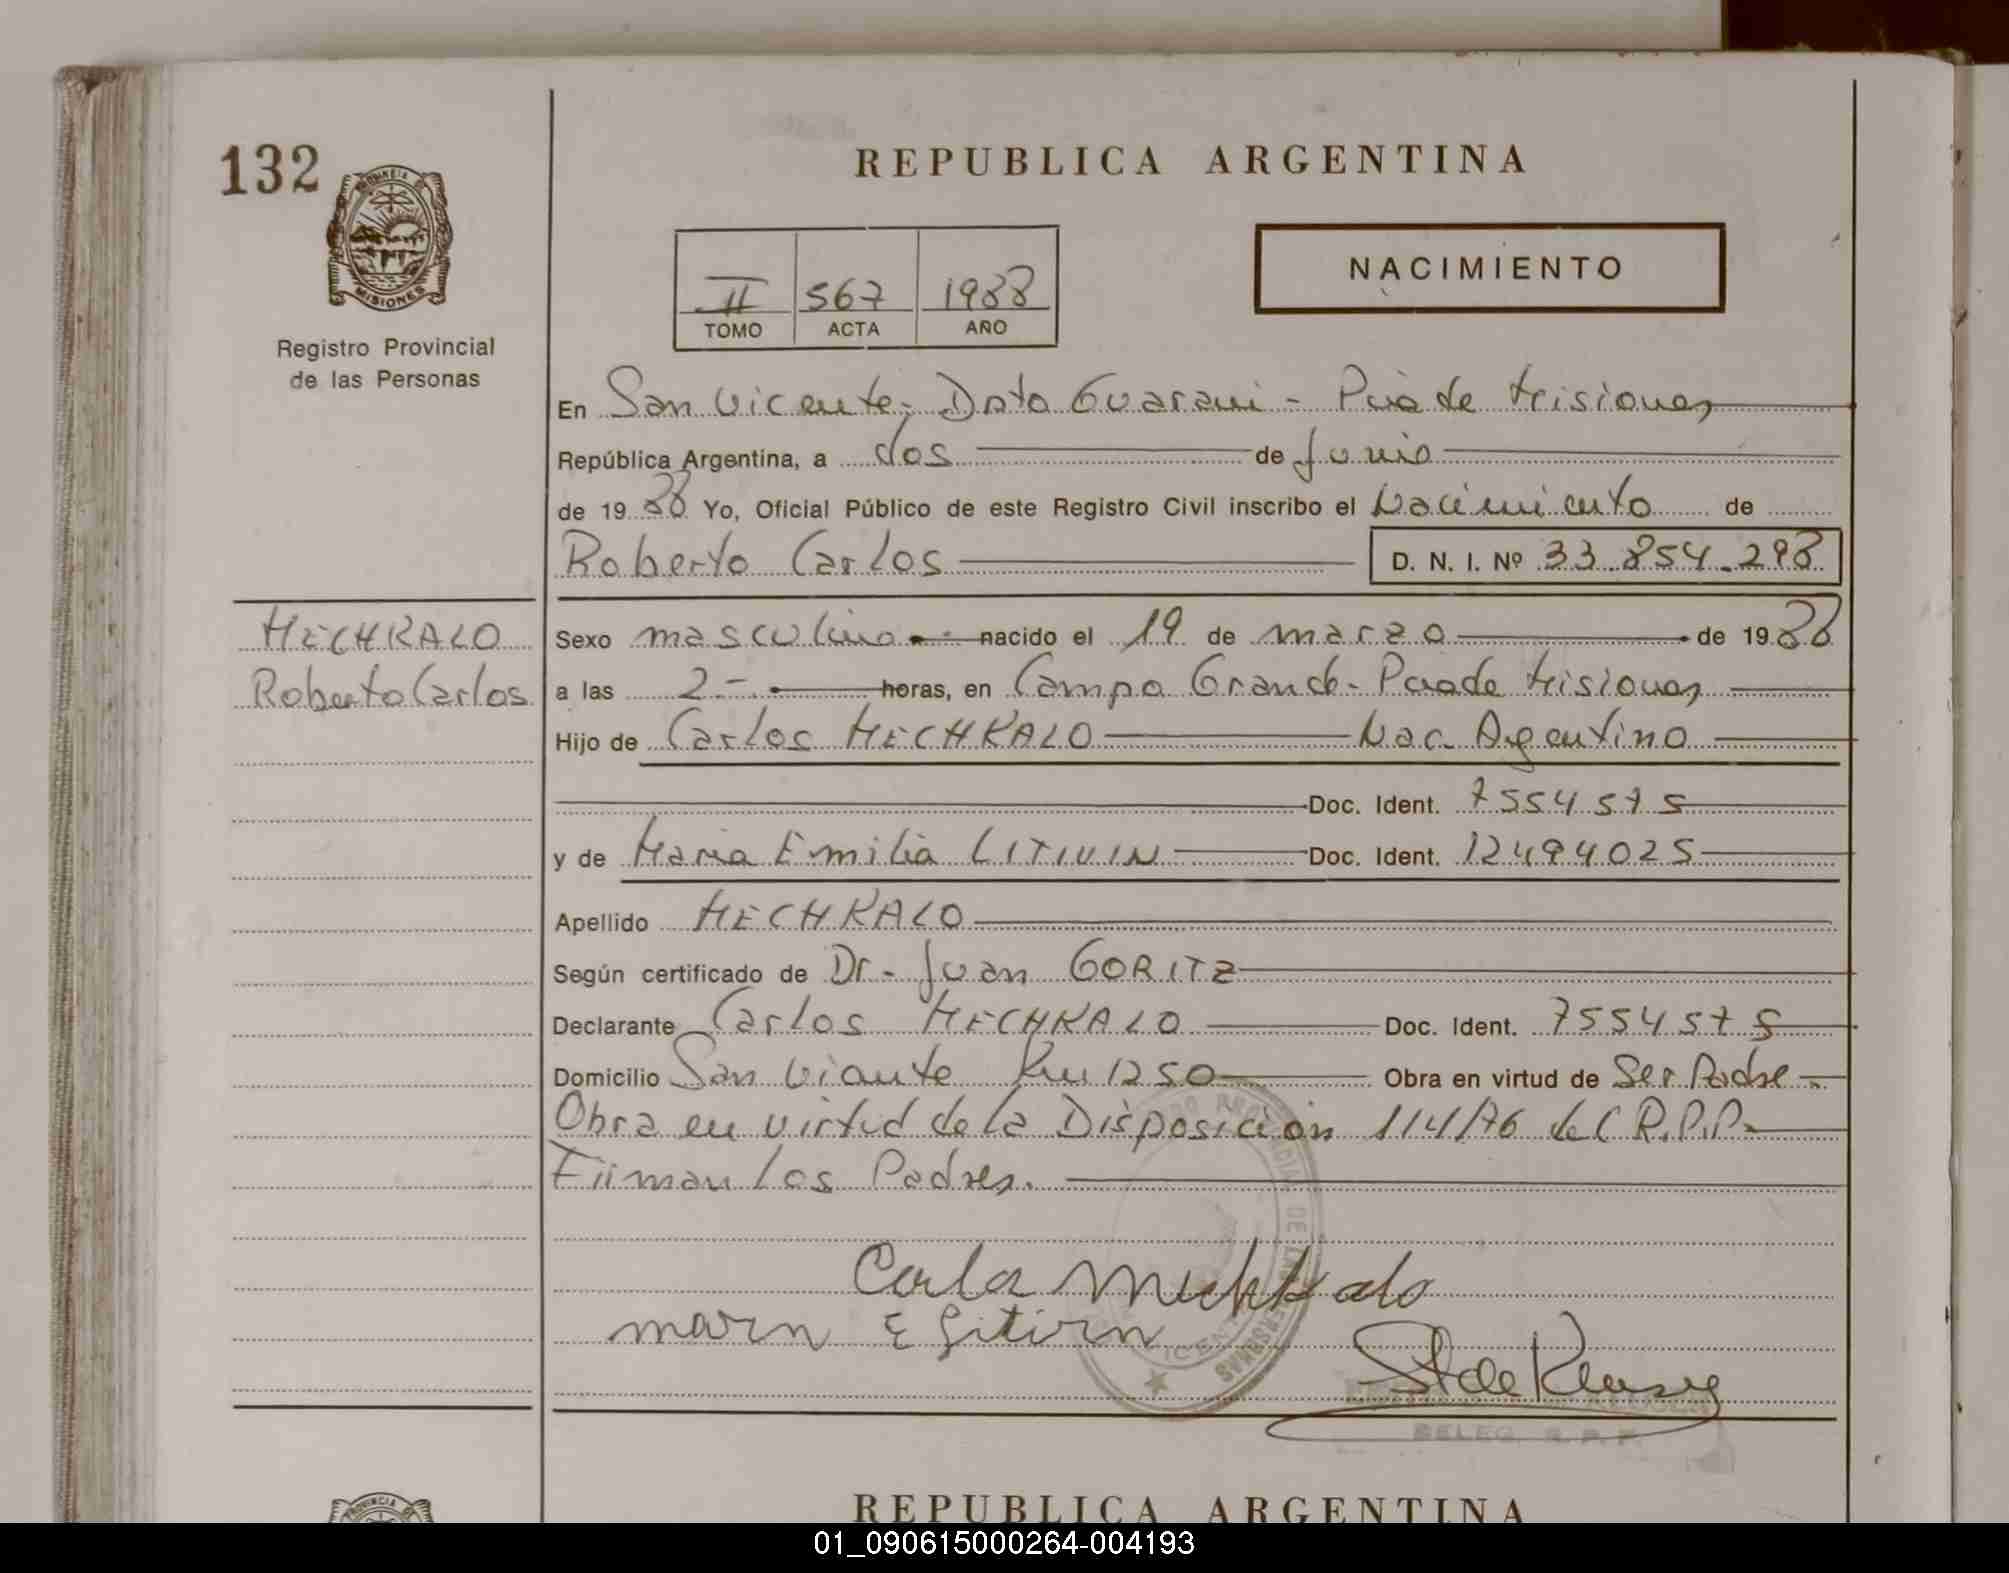 132
PROVINCIA DE
MISIONES
Registro Provincial
de las Personas
REPUBLICA ARGENTINA
II 567 1988
TOMO ACTA AÑO
NACIMIENTO
En San Vicente - Dpto Guarani - Pcia de Misiones
República Argentina, a dos de Junio
de 19 88 Yo, Oficial Público de este Registro Civil inscribo el Nacimiento de
Roberto Carlos D. N. I. Nº 33.854.298
MECHKALO
Roberto Carlos
Sexo masculino nacido el 19 de marzo de 19 88
a las 2 - horas, en Campo Grande - Pcia de Misiones
Hijo de Carlos MECHKALO Nac. Argentino
Doc. Ident. 7554575
y de Maria Emilia LITIVIN Doc. Ident. 12494025
Apellido MECHKALO
Según certificado de Dr. Juan GORITZ
Declarante Carlos MECHKALO Doc. Ident. 7554575
Domicilio San Vicente Km 1250 Obra en virtud de Ser Padre -
Obra en virtud de la Disposición 114/76 del R.P.P.
Firman los Padres.
DELEG. R. P. P.
REPUBLICA ARGENTINA
01_090615000264-004193